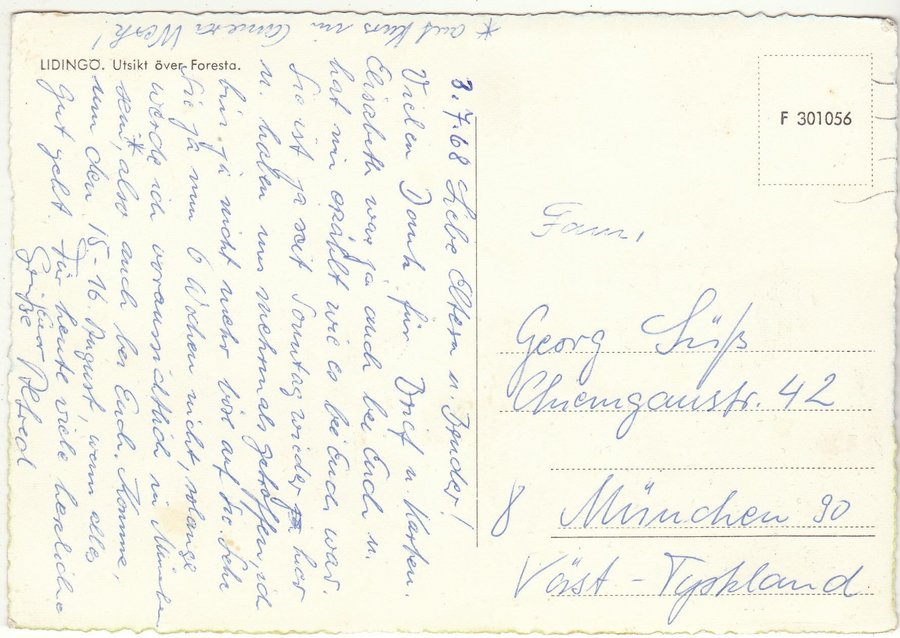 LIDINGÖ. Utsikt över Foresta.
3.7.68 Liebe Eltern u. Bruder!
Vielen Dank für Brief u. Karten.
Elisabeth war ja auch bei Euch u.
hat mir erzählt wie es bei Euch war.
Sie ist ja seit Sonntag wieder hier
u. haben uns mehrmals getroffen, ich
bin ja nicht mehr bös auf sie. Sehe
Sie ja nun 6 Wochen nicht, solange
werde ich voraussichtlich in München
sein*, also auch bei Euch. Komme,
um den 15-16. August, wenn alles
gut geht. Für heute viele herzliche
Grüße Euer
* auf Kurs in Werk!
F 301056
Fam,
Georg Süß
Chiemgaustr. 42
8 München 90
Väst-Tyskland